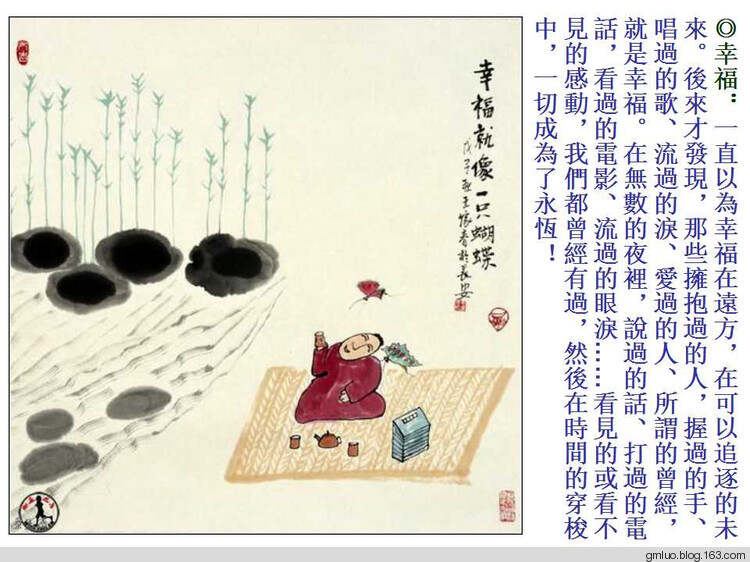 ◎幸福：一直以為幸福在遠方，在可以追逐的未
來。後來才發現，那些擁抱過的人，握過的手、
唱過的歌、流過的淚、愛過的人、所謂的曾經，
就是幸福。在無數的夜裡，說過的話、打過的電
話，看過的電影、流過的眼淚……看見的或看不
見的感動，我們都曾經有過，然後在時間的穿梭
中，一切成為了永恆！
幸福就像一只蝴蝶
戊子夏王家春於長安
gmluo.blog.163.com